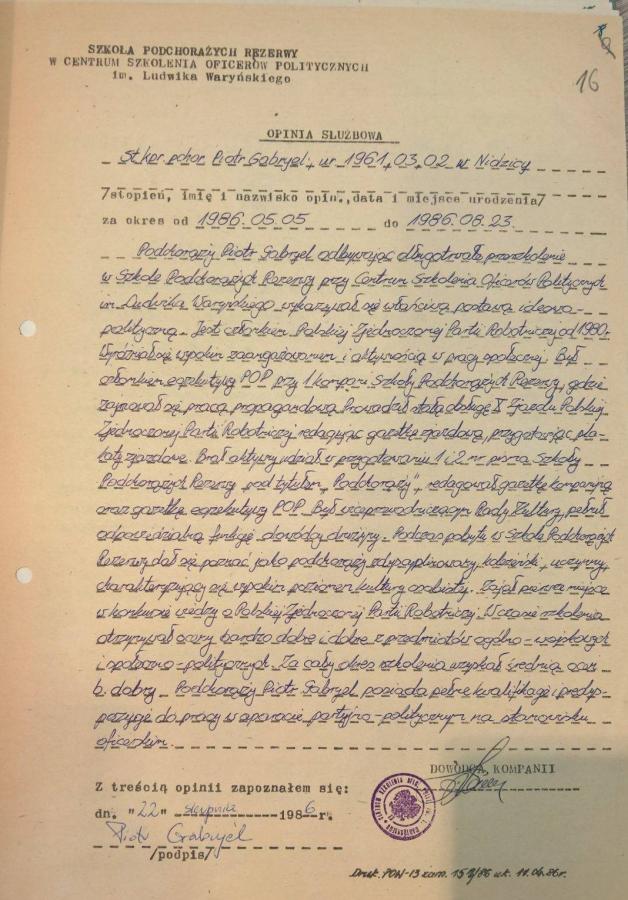 16
SZKOŁA PODCHORĄŻYCH REZERWY
W CENTRUM SZKOLENIA OFICERÓW POLITYCZNYCH
im. Ludwika Waryńskiego
OPINIA SŁUŻBOWA
st. kpr. pchor. Piotr Gabryel, ur. 1961.03.02 w Nidzicy
/stopień, imię i nazwisko opin., data i miejsce urodzenia/
za okres od 1986.05.05 do 1986.08.23.
Podchorąży Piotr Gabryel odbywając długotrwałe przeszkolenie
w Szkole Podchorążych Rezerwy przy Centrum Szkolenia Oficerów Politycznych
im. Ludwika Waryńskiego wykazywał się właściwą postawą ideowo-
polityczną. Jest członkiem Polskiej Zjednoczonej Partii Robotniczej od 1980r.
Wyróżniał się wysokim zaangażowaniem i aktywnością w pracy społecznej. Był
członkiem egzekutywy POP przy 1 kompanii Szkoły Podchorążych Rezerwy, gdzie
zajmował się pracą propagandową. Prowadził stałą obsługę X Zjazdu Polskiej
Zjednoczonej Partii Robotniczej redagując gazetkę zjazdową, przygotowując pla-
katy zjazdowe. Brał aktywny udział w przygotowaniu 1 i 2 nr pisma Szkoły
Podchorążych Rezerwy pod tytułem "Podchorąży", redagował gazetkę kompanijną
oraz gazetkę egzekutywy POP. Był wiceprzewodniczącym Rady Kultury, pełnił
odpowiedzialną funkcję dowódcy drużyny. Podczas pobytu w Szkole Podchorążych
Rezerwy dał się poznać jako podchorąży zdyscyplinowany, koleżeński, uczynny,
charakteryzujący się wysokim poziomem kultury osobistej. Zajął pierwsze miejsce
w konkursie wiedzy o Polskiej Zjednoczonej Partii Robotniczej. W czasie szkolenia
otrzymywał oceny bardzo dobre i dobre z przedmiotów ogólno-wojskowych
i społeczno-politycznych. Za cały okres szkolenia uzyskał średnią ocen
b. dobry. Podchorąży Piotr Gabryel posiada pełne kwalifikacje i predys-
pozycje do pracy w aparacie partyjno-politycznym na stanowisku
oficerskim.
DOWÓDCA KOMPANII
Z treścią opinii zapoznałem się:
dn. "22" sierpnia 1986r.
Piotr Gabryel
/podpis/
Druk. POW-13 zam. 15 /86 wk. 11.04.86r.